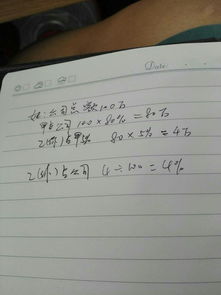 Date:
如:公司总数100万
甲占公司 100×80%=80万
乙(你)占甲 80×5%=4万
乙(你)占公司 4÷100=4%